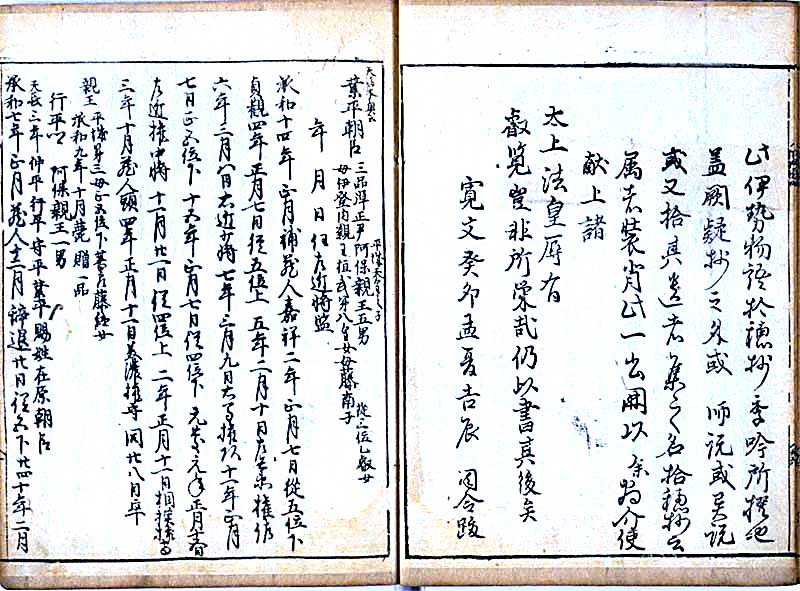 此伊勢物語拾穂抄季吟所撰也
蓋闕疑抄之外或 師説或
或又拾其遺者集之名拾穂抄云
属者装背此一書 以余為介使
献上諸
太上法皇辱有
叡覧豈非所栄哉仍以書其後矣
寛文癸卯孟夏吉辰 令跋
業平朝臣 三品弾正尹阿保親王五男 平城天皇之子
母伊登内親王桓武第八皇女母藤南子 従三位乙叡女
年 月 日任左近将監
承和十四年正月補蔵人嘉祥二年正月七日従五位下
貞観四年正月七日従五位上 五年二月十日左兵衛権佐
六年三月八日右近少将七年三月九日右馬権頭十一年正月
七日正五位下十五年正月七日従四位下元慶元年正月十五日
左近権中将十一月廿一日従四位上二年正月十一日相模権守
三年十月蔵人頭四年正月十一日美濃権守同廿八日卒
親王 平城第三母正五位下葛井藤経女
承和九年十月薨贈一品
行平 阿保親王一男
天長三年仲平行平守平業平賜姓在原朝臣
承和七年正月蔵人十二月辞退廿日従五下廿四十年二月